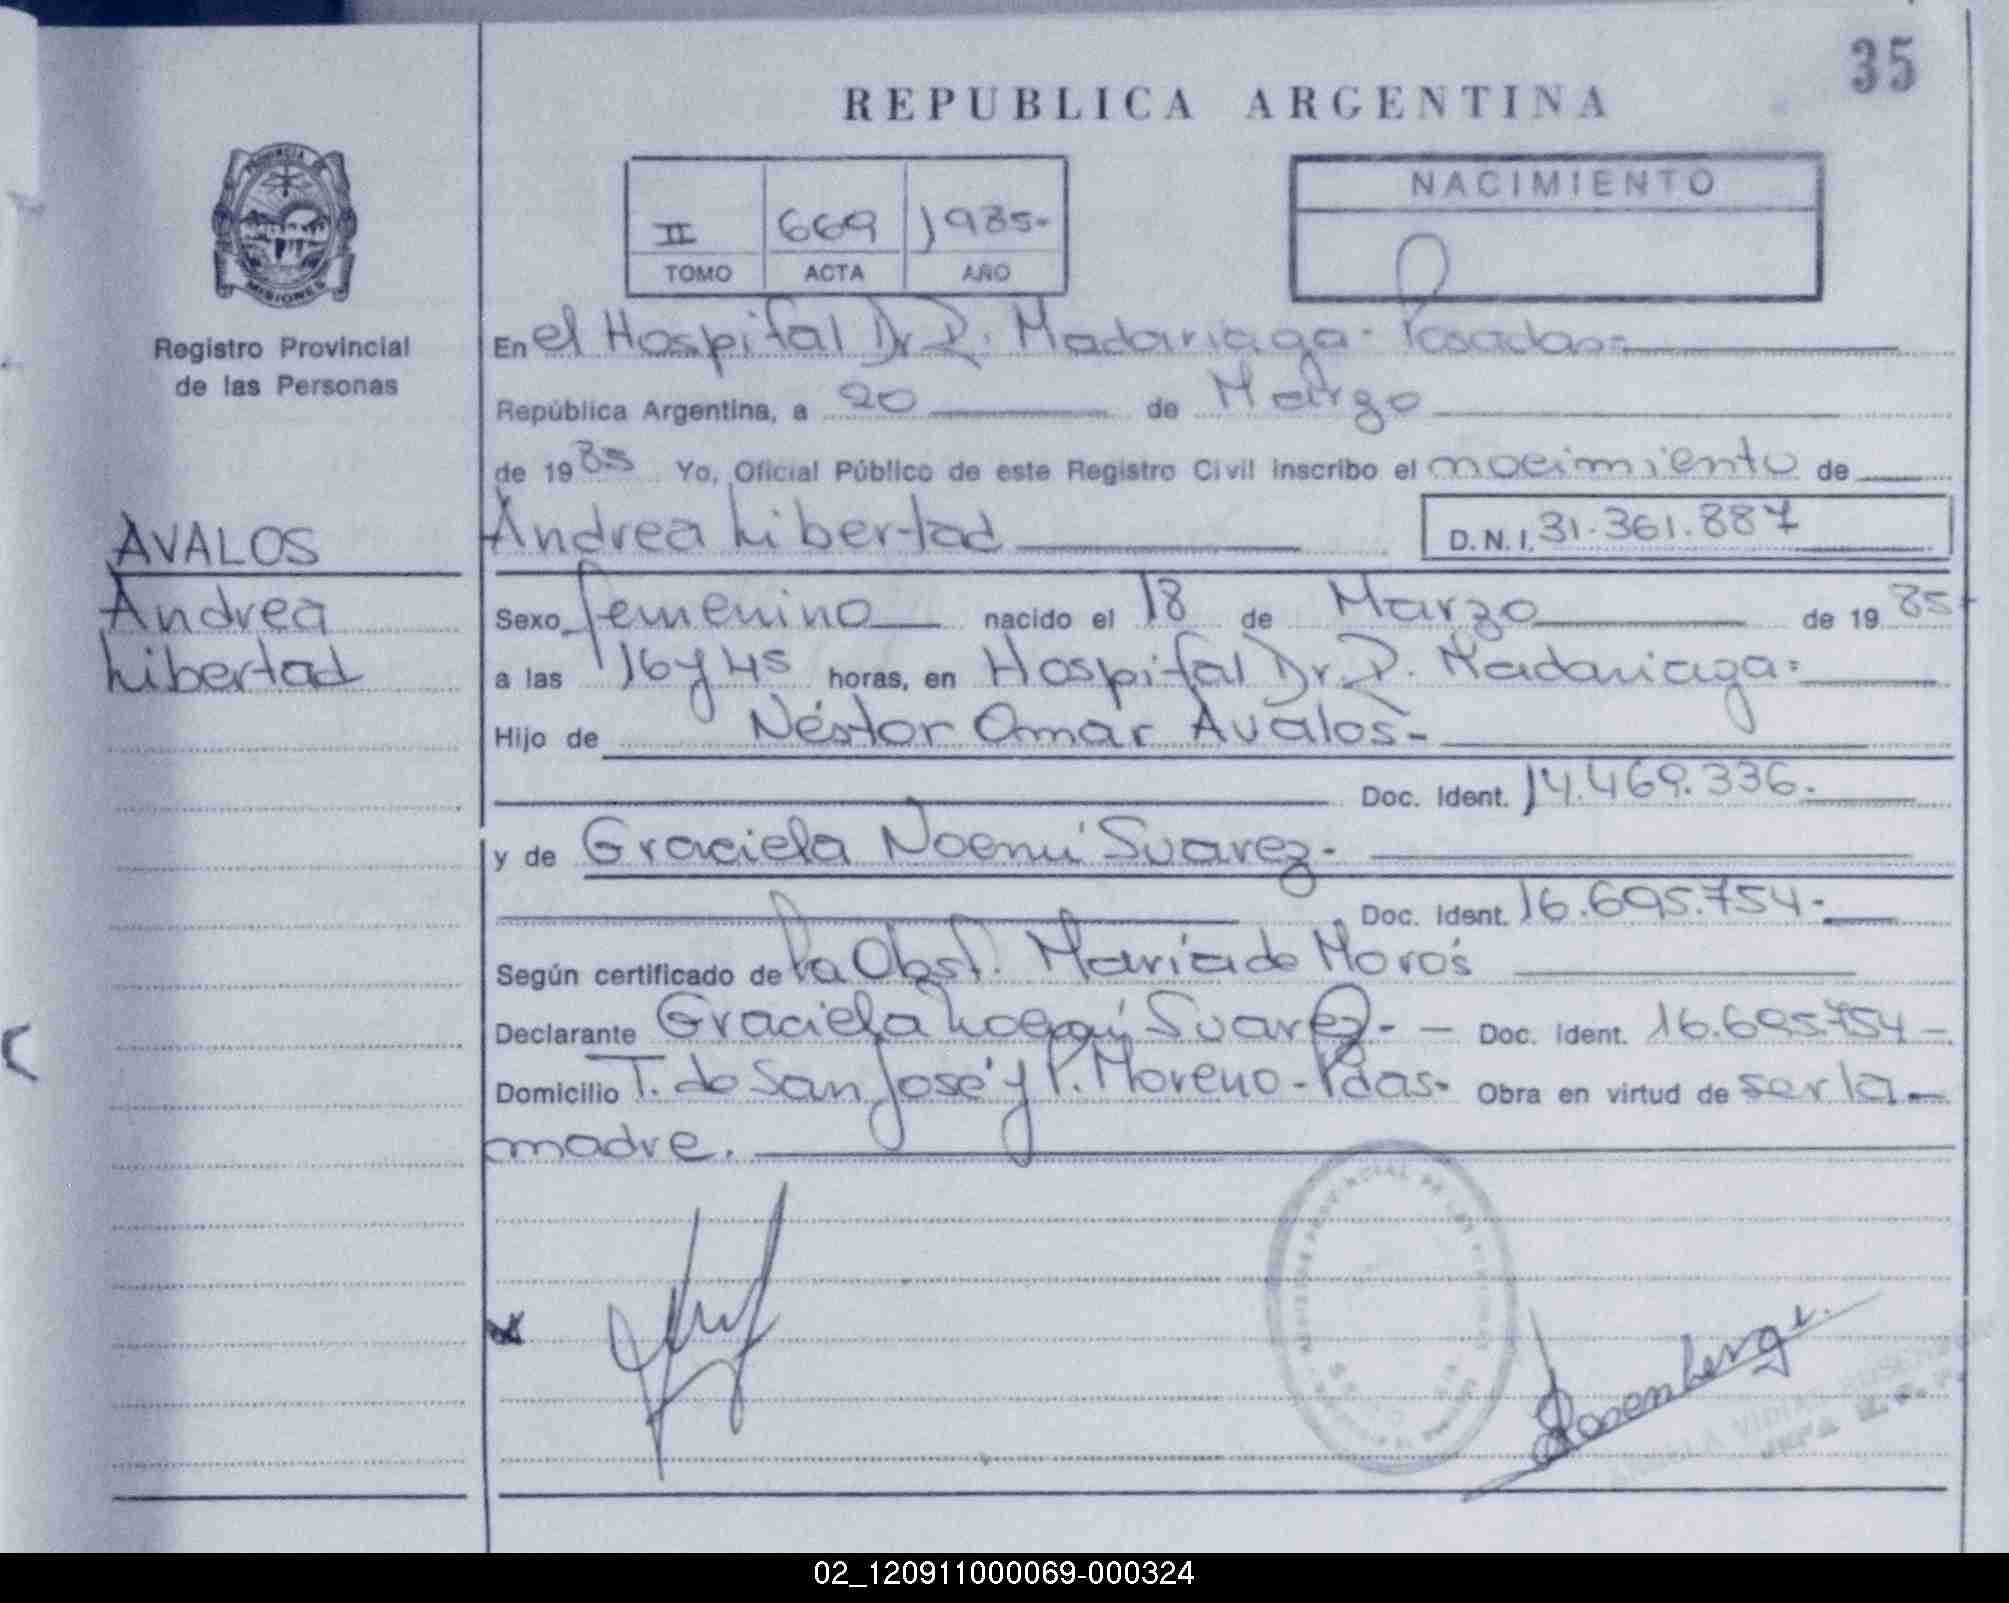 35
REPUBLICA ARGENTINA
PROVINCIA DE
MISIONES
Registro Provincial
de las Personas
II 669 1985-
TOMO ACTA AÑO
NACIMIENTO
En el Hospital Dr R. Madariaga - Posadas=
República Argentina, a 20 de Marzo
de 1985 Yo, Oficial Público de este Registro Civil inscribo el nacimiento de
AVALOS
Andrea
Libertad
Andrea Libertad
D.N.I. 31.361.887
Sexo femenino nacido el 18 de Marzo de 1985
a las 16 y 45 horas, en Hospital Dr. R. Madariaga=
Hijo de Néstor Omar Avalos-
Doc. Ident. 14.469.336.
y de Graciela Noemí Suarez-
Doc. Ident. 16.695.754-
Según certificado de la Obst. María de Morós
Declarante Graciela Noemí Suarez- - Doc. Ident. 16.695.754-
Domicilio T. de San José y P. Moreno-Pdas- Obra en virtud de ser la-
madre.
Rosenberg
02_120911000069-000324